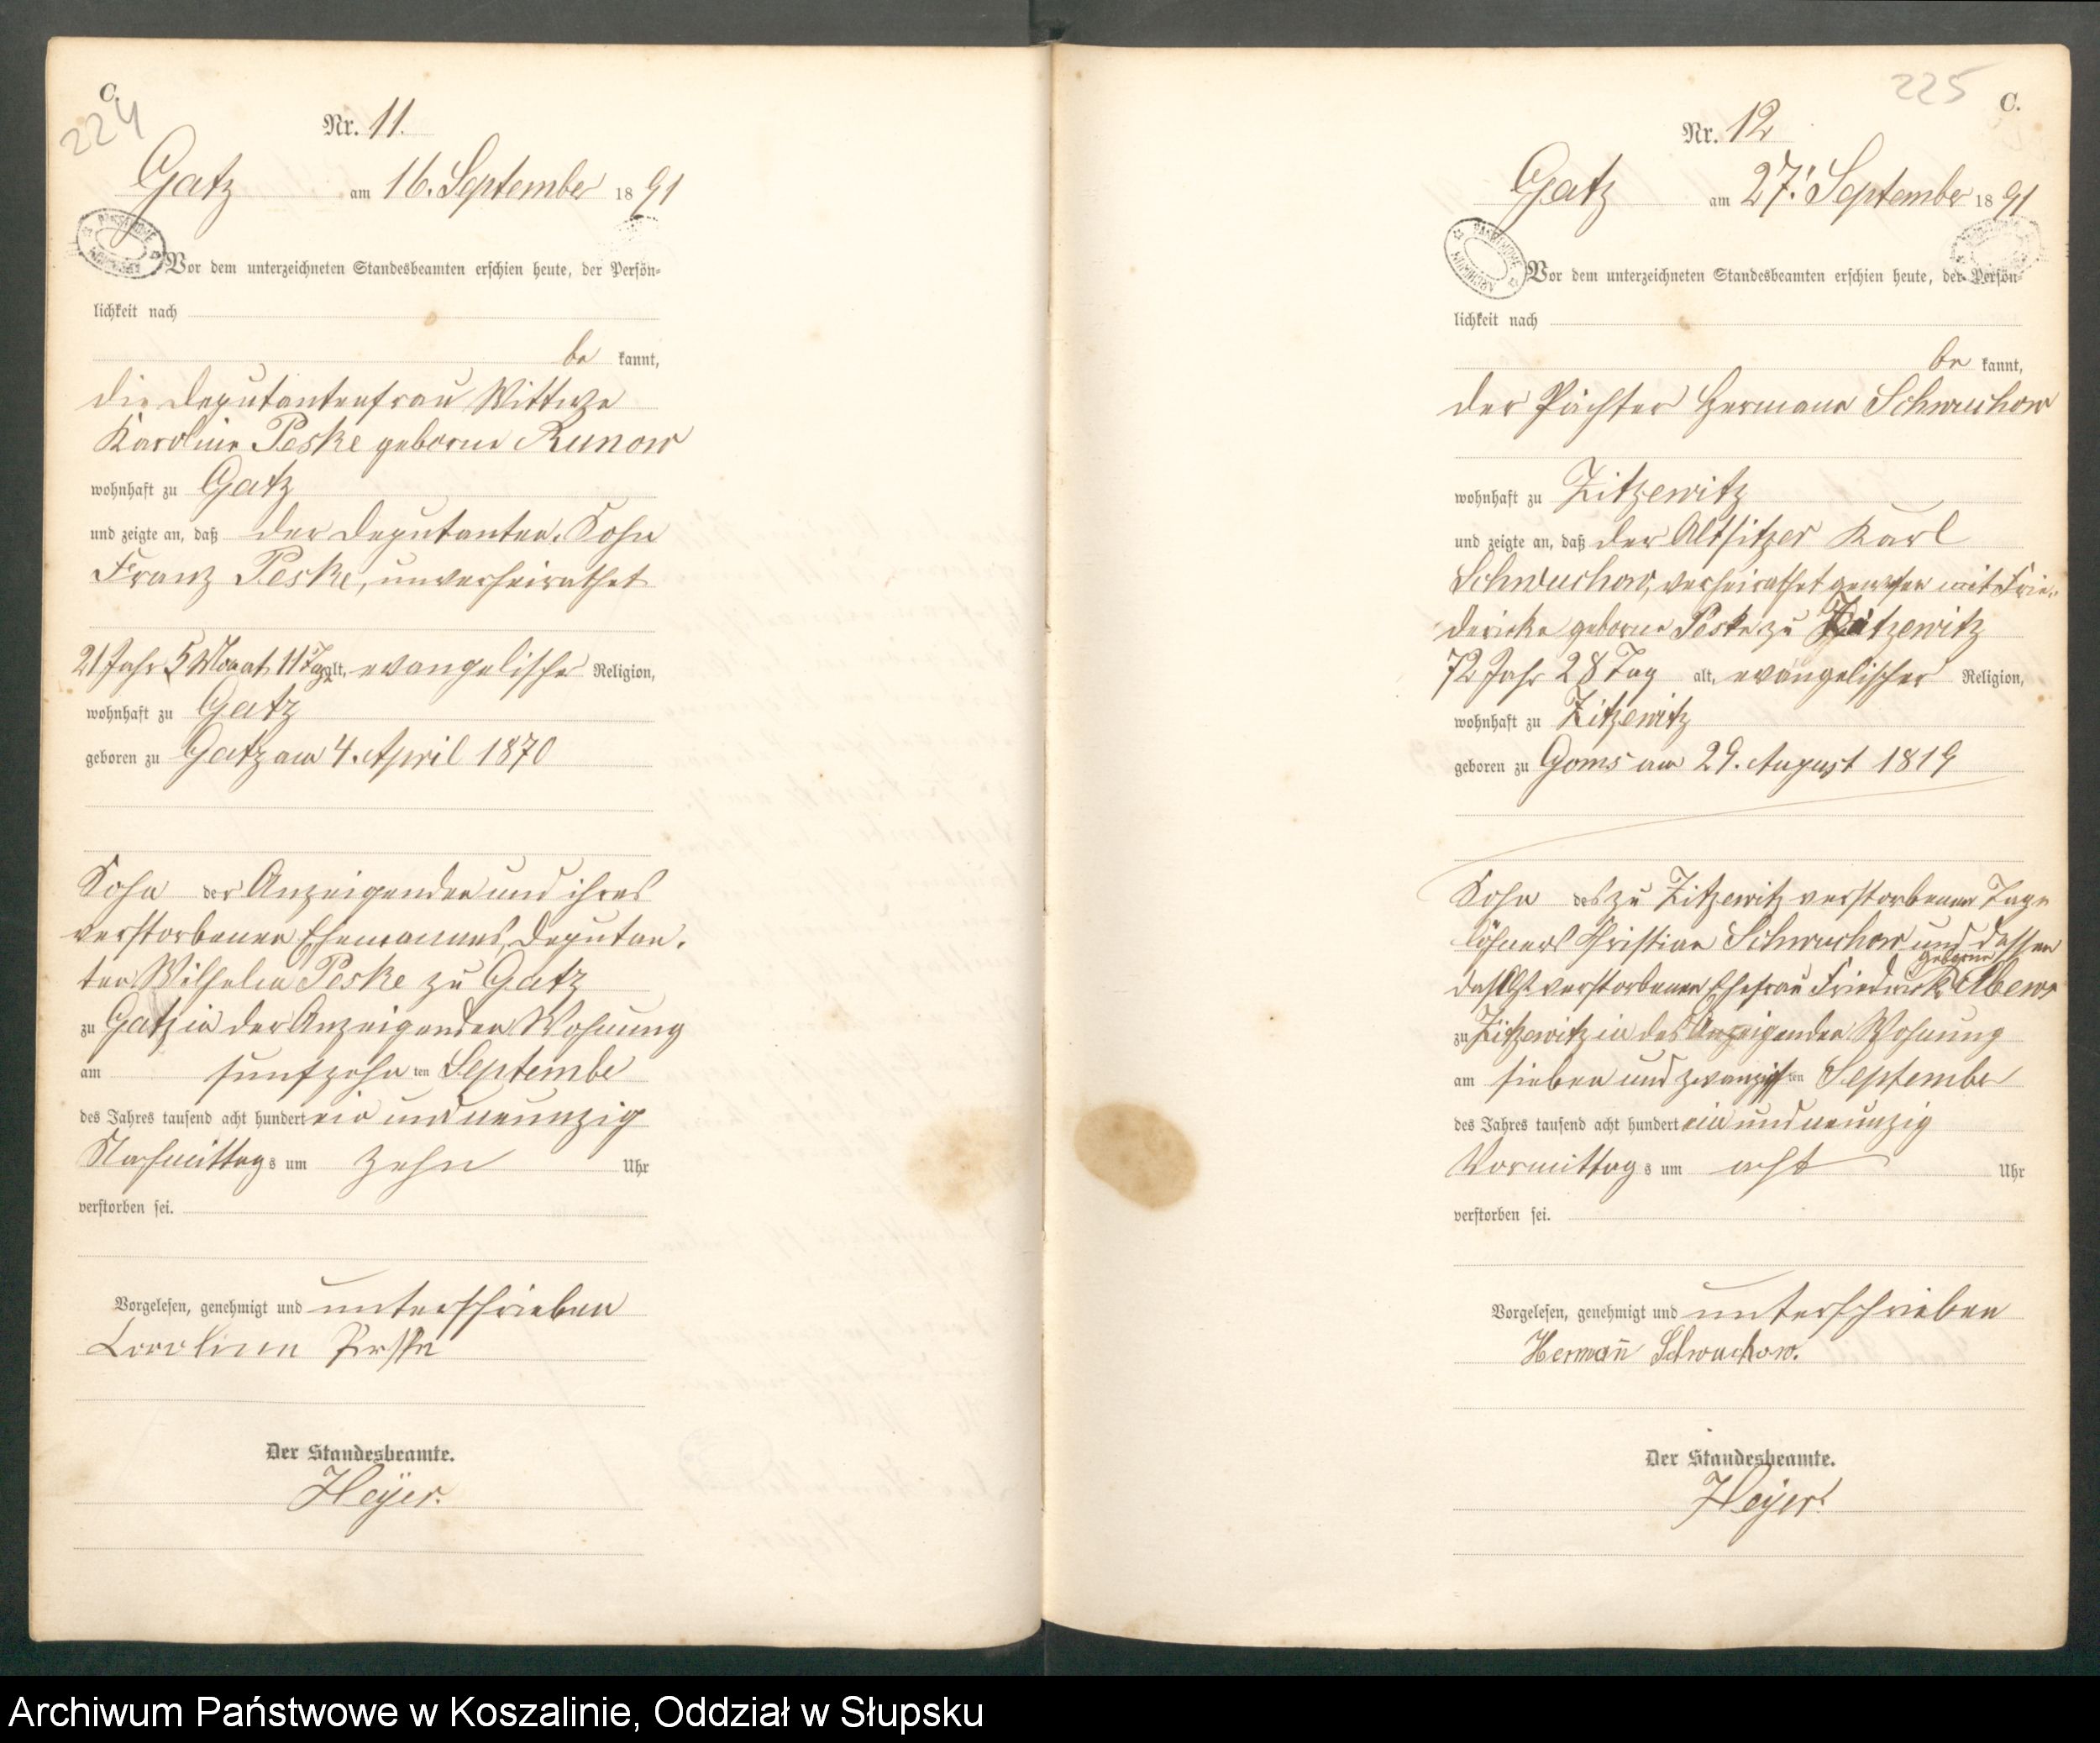 C.
224
Nr. 11.
Gatz am 16. September 1891
Vor dem unterzeichneten Standesbeamten erschien heute, der Persön-
lichkeit nach
be kannt,
die Deputantenfrau Wittwe
Karoline Peske geborne Runow
wohnhaft zu Gatz
und zeigte an, daß der Deputanten-Sohn
Franz Peske, unverheirathet
21 Jahr 5 Monat 11 Tage alt, evangelischer Religion,
wohnhaft zu Gatz
geboren zu Gatz am 4. April 1870
Sohn der Anzeigenden und ihres
verstorbenen Ehemannes, Deputan-
ten Wilhelm Peske zu Gatz
zu Gatz in der Anzeigenden Wohnung
am fünfzehn ten September
des Jahres tausend acht hundert ein und neunzig
Nachmittags um zehn Uhr
verstorben sei.
Vorgelesen, genehmigt und unterschrieben
Karoline Peske
Der Standesbeamte.
Heyer.
225
C.
Nr. 12
Gatz am 27. September 1891
Vor dem unterzeichneten Standesbeamten erschien heute, der Persön-
lichkeit nach
be kannt,
der Pächter Hermann Schwuchow
wohnhaft zu Zitzewitz
und zeigte an, daß der Altsitzer Karl
Schwuchow, verheirathet gewesen mit Frie-
dericke geborne Peske zu Zitzewitz
72 Jahr 28 Tag alt, evangelischer Religion,
wohnhaft zu Zitzewitz
geboren zu Goms am 29. August 1819
Sohn des zu Zitzewitz verstorbenen Tage
löhners Christian Schwuchow und dessen
daselbst verstorbenen Ehefrau Friedericke geborne Albews
zu Zitzewitz in des Anzeigenden Wohnung
am sieben und zwanzigsten September
des Jahres tausend acht hundert ein und neunzig
Vormittags um acht Uhr
verstorben sei.
Vorgelesen, genehmigt und unterschrieben
Hermann Schwuchow.
Der Standesbeamte.
Heyer.
Archiwum Państwowe w Koszalinie, Oddział w Słupsku